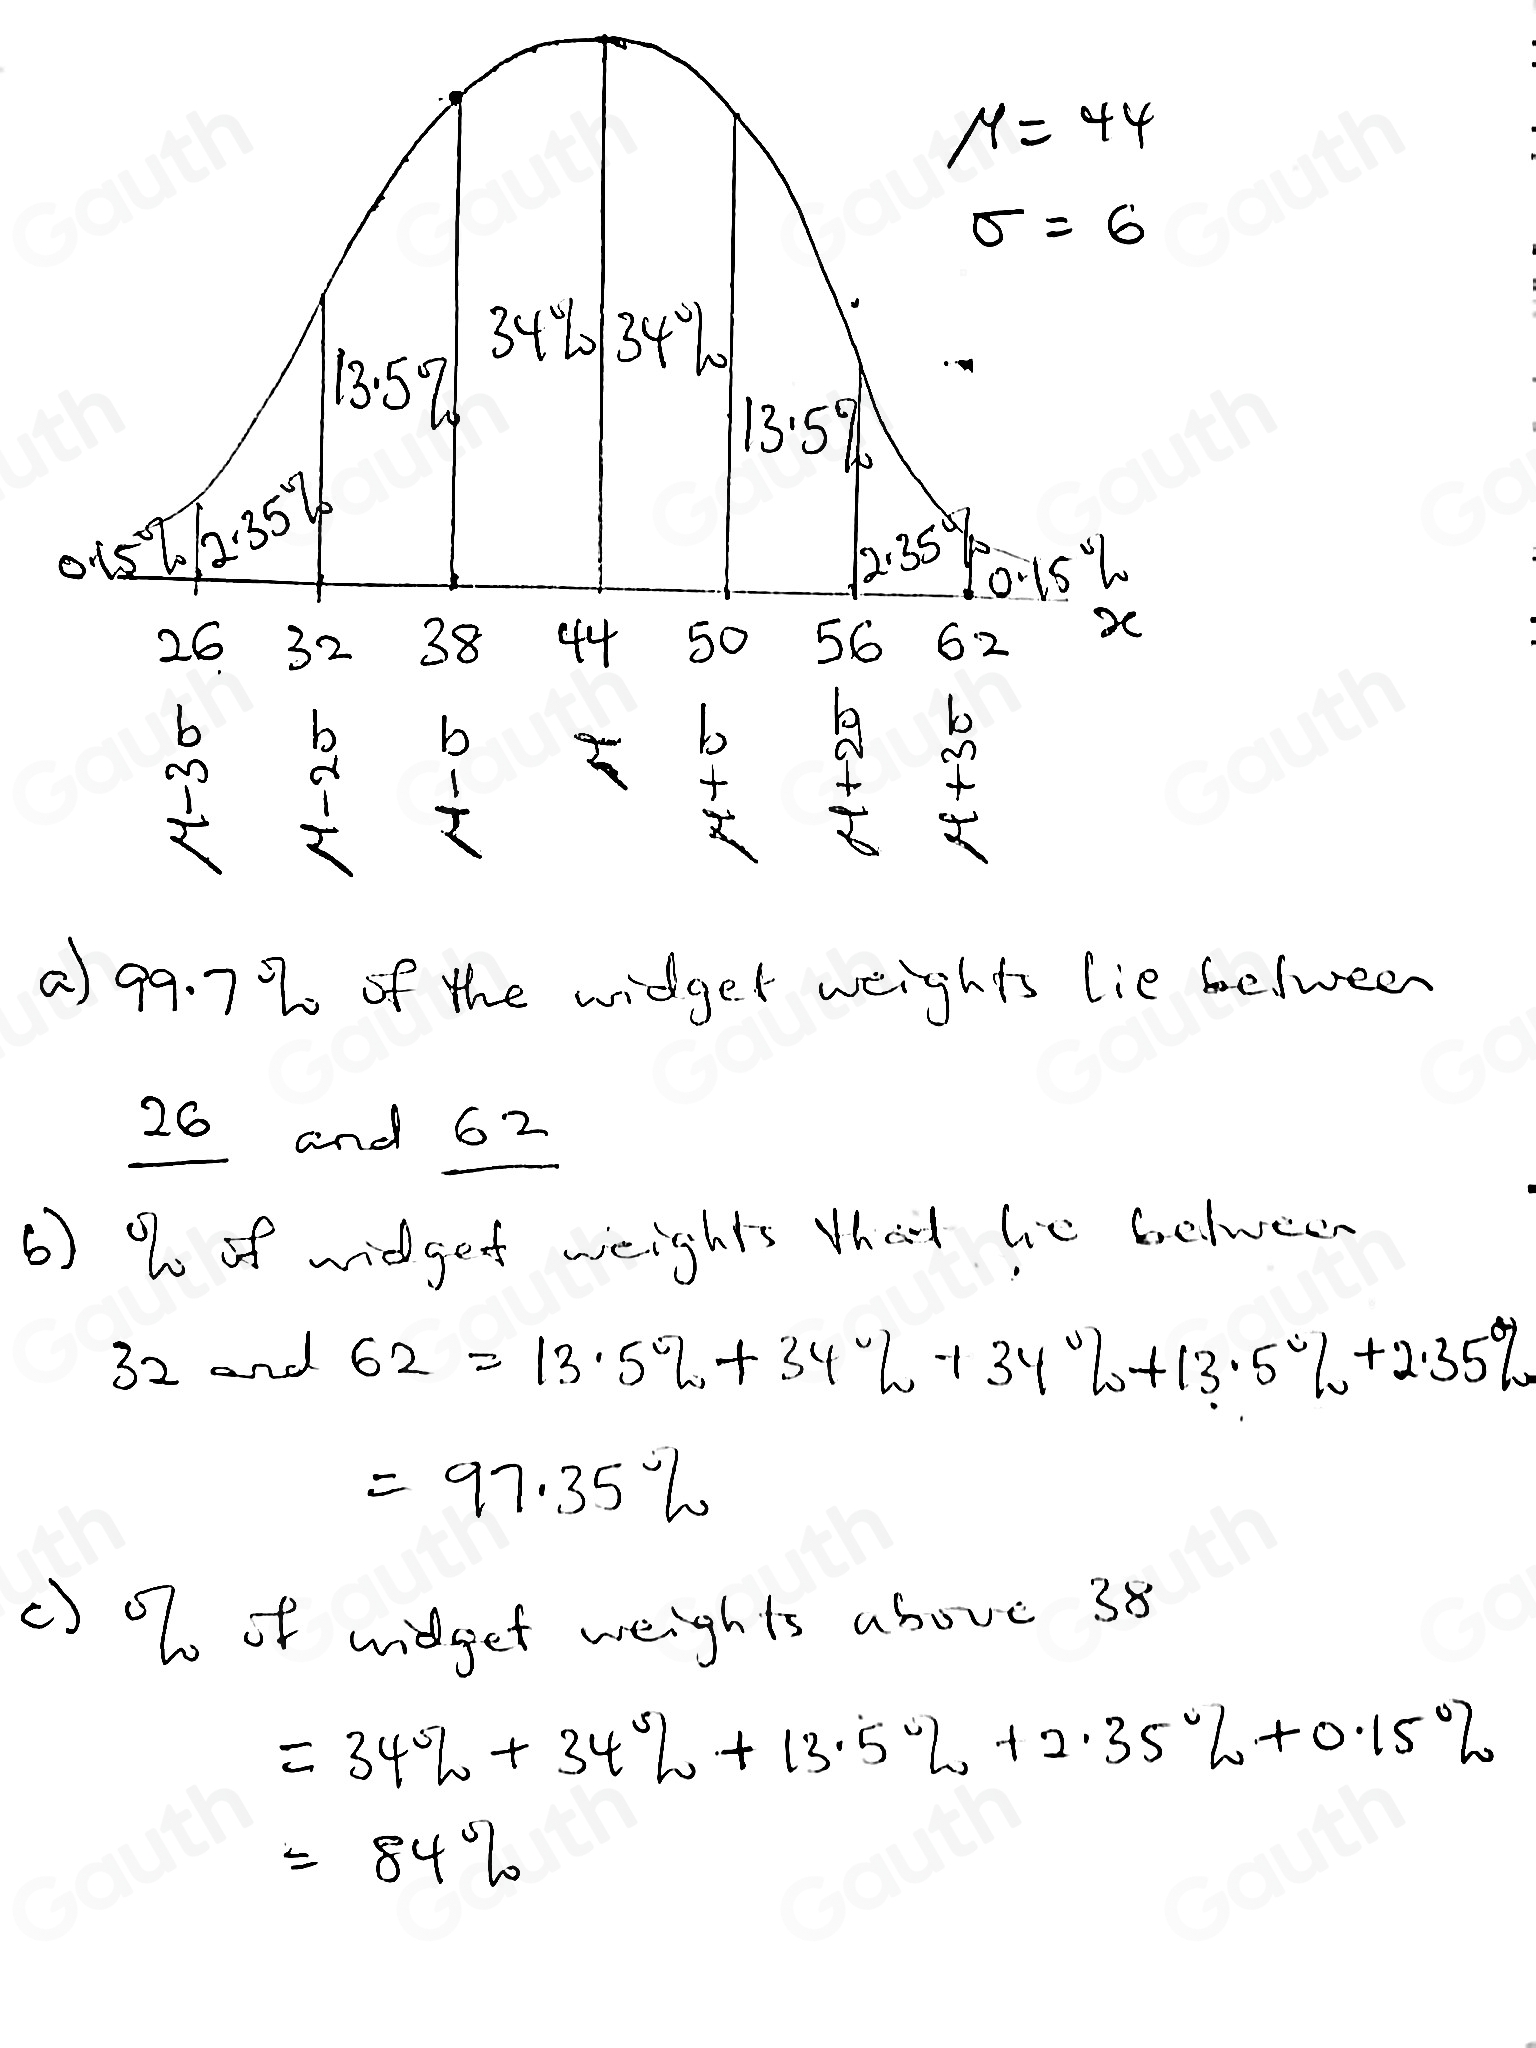 μ = 44
σ = 6
34% 34%
13.5% 13.5%
0.15% 2.35% 2.35% 0.15%
x
26 32 38 44 50 56 62
μ-3σ μ-2σ μ-σ μ μ+σ μ+2σ μ+3σ
a) 99.7% of the widget weights lie between
26 and 62
b) % of widget weights that lie between
32 and 62 = 13.5% + 34% + 34% + 13.5% + 2.35%
= 97.35%
c) % of widget weights above 38
= 34% + 34% + 13.5% + 2.35% + 0.15%
= 84%
Gauth